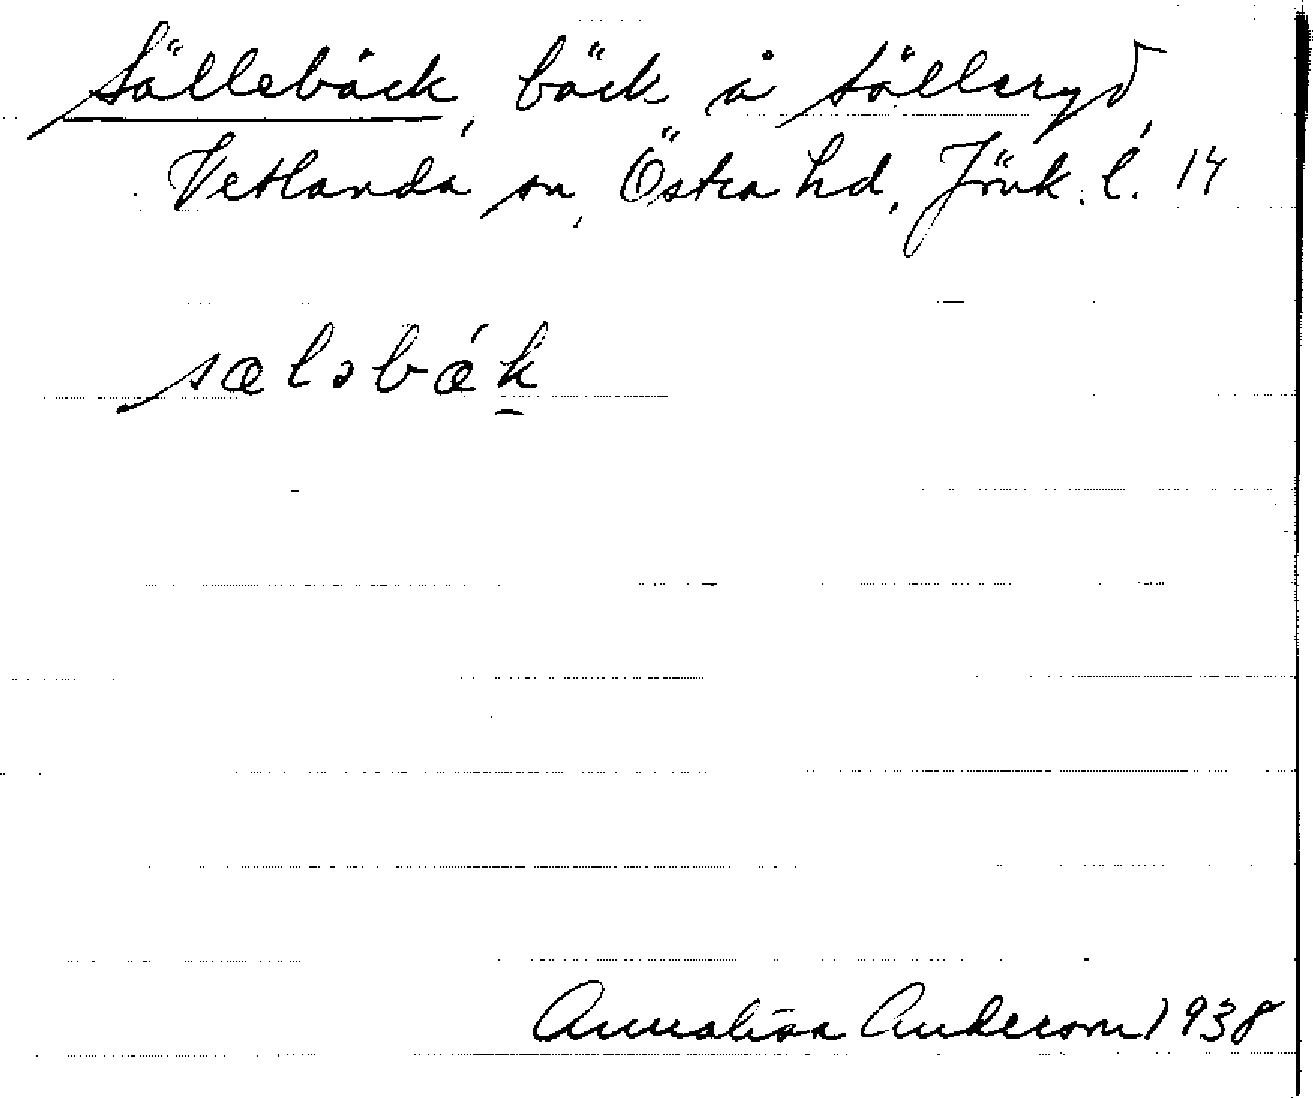 Sällebäck, bäck å Sälleryd,
Vetlanda sn, Östra hd, Jönk. l. 14
sæləbǽk
Annalisa Anderson 1938